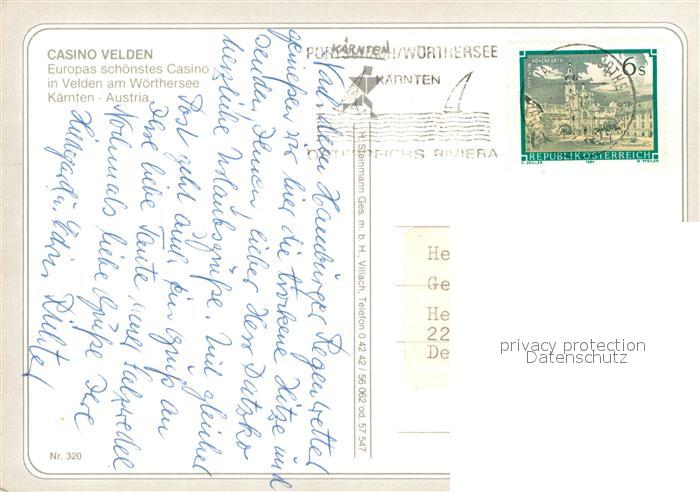 CASINO VELDEN
Europas schönstes Casino
in Velden am Wörthersee
Kärnten - Austria
KÄRNTEN
PÖRTSCHACH/WÖRTHERSEE
KÄRNTEN
ÖSTERREICHS RIVIERA
6s
REPUBLIK ÖSTERREICH
Nach dem Hamburger Regenwetter
genießen wir hier die trockene Hitze und
senden Ihnen, lieber Herr
herzliche Urlaubsgrüße. Mit gleicher
Post geht auch ein Gruß an
Ihre liebe Tante
Nochmals liebe Grüße Ihre
Richter
H. Steinmann Ges. m. b. H., Villach, Telefon 0 42 42 / 56 062 od. 57 547
He
Ge
He
22
De
privacy protection
Datenschutz
Nr. 320